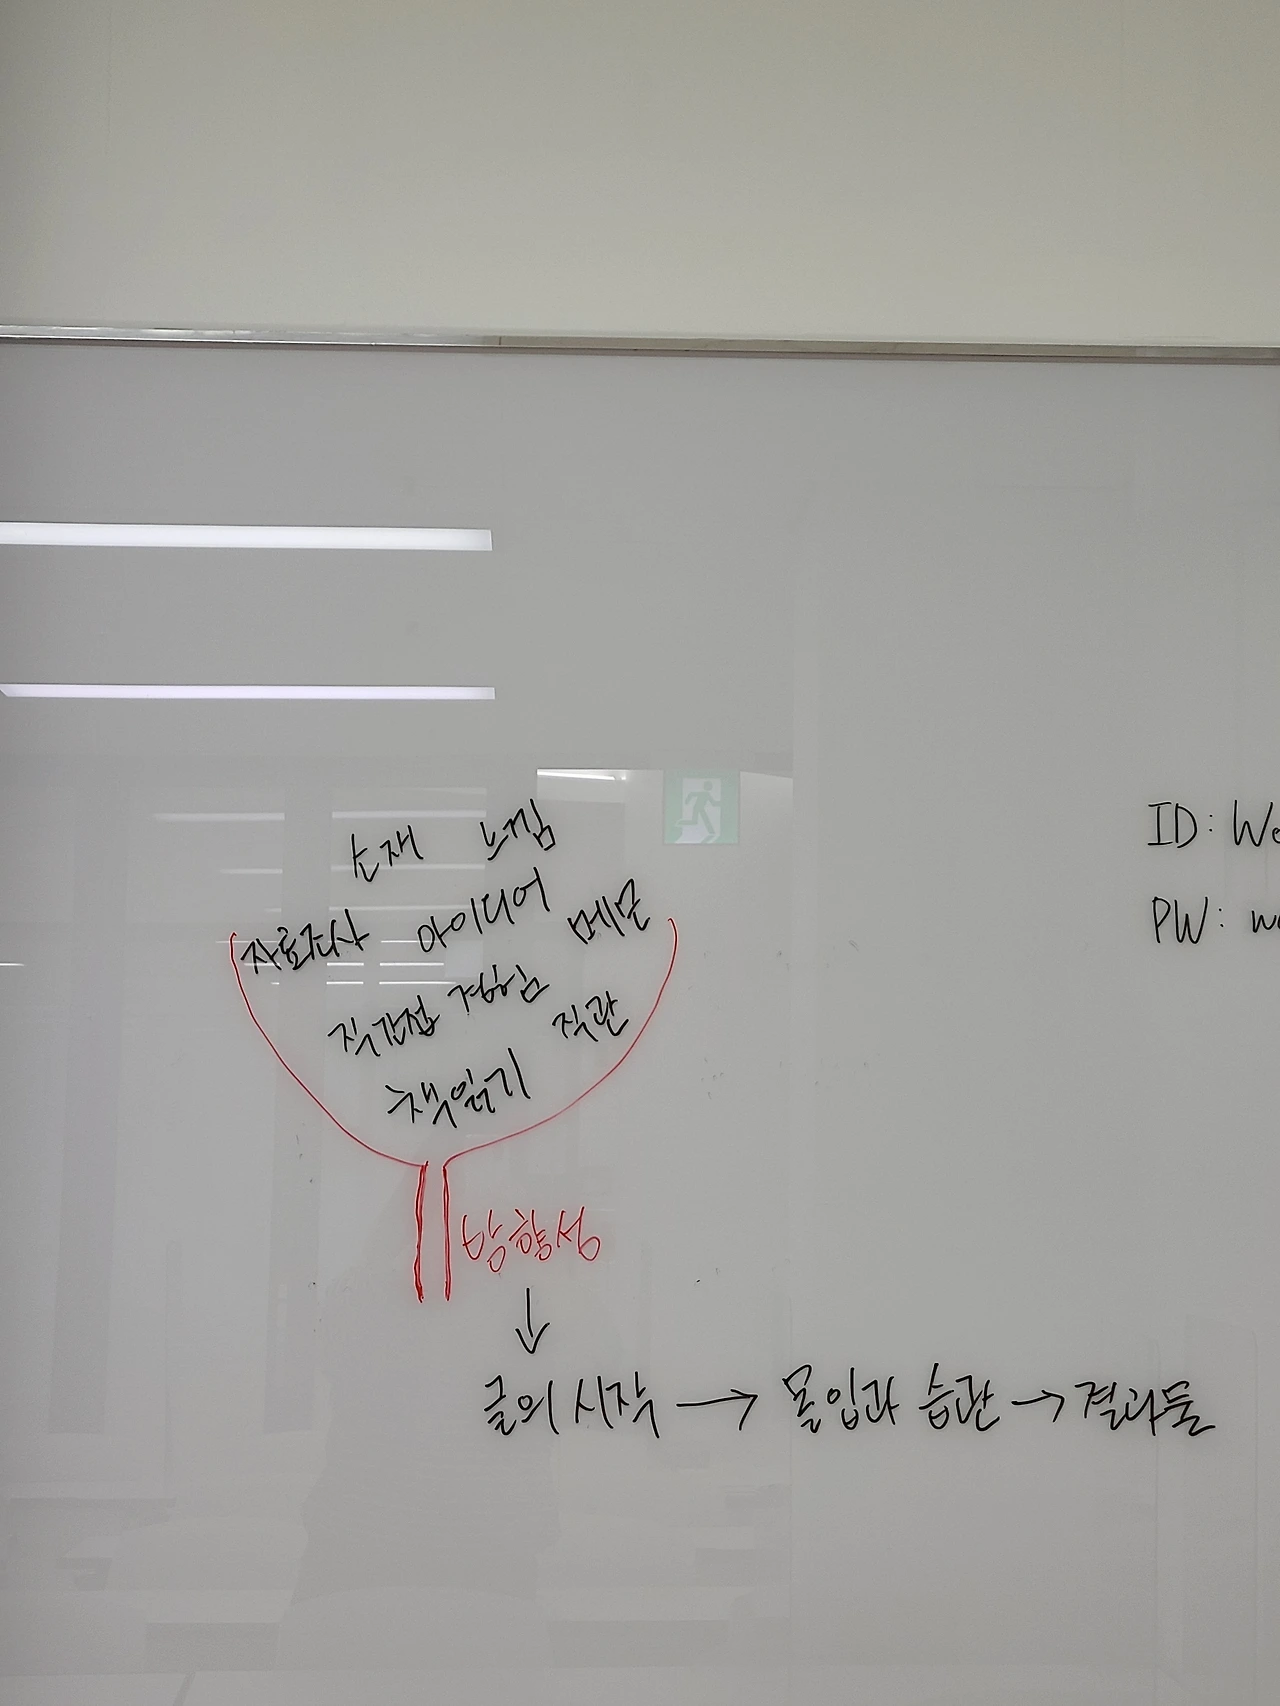 소재 느낌
자료조사 아이디어 메모
직간접 경험 직관
책읽기
방향성
↓
글의 시작 → 몰입과 습관 → 결과물
ID: We
PW: we